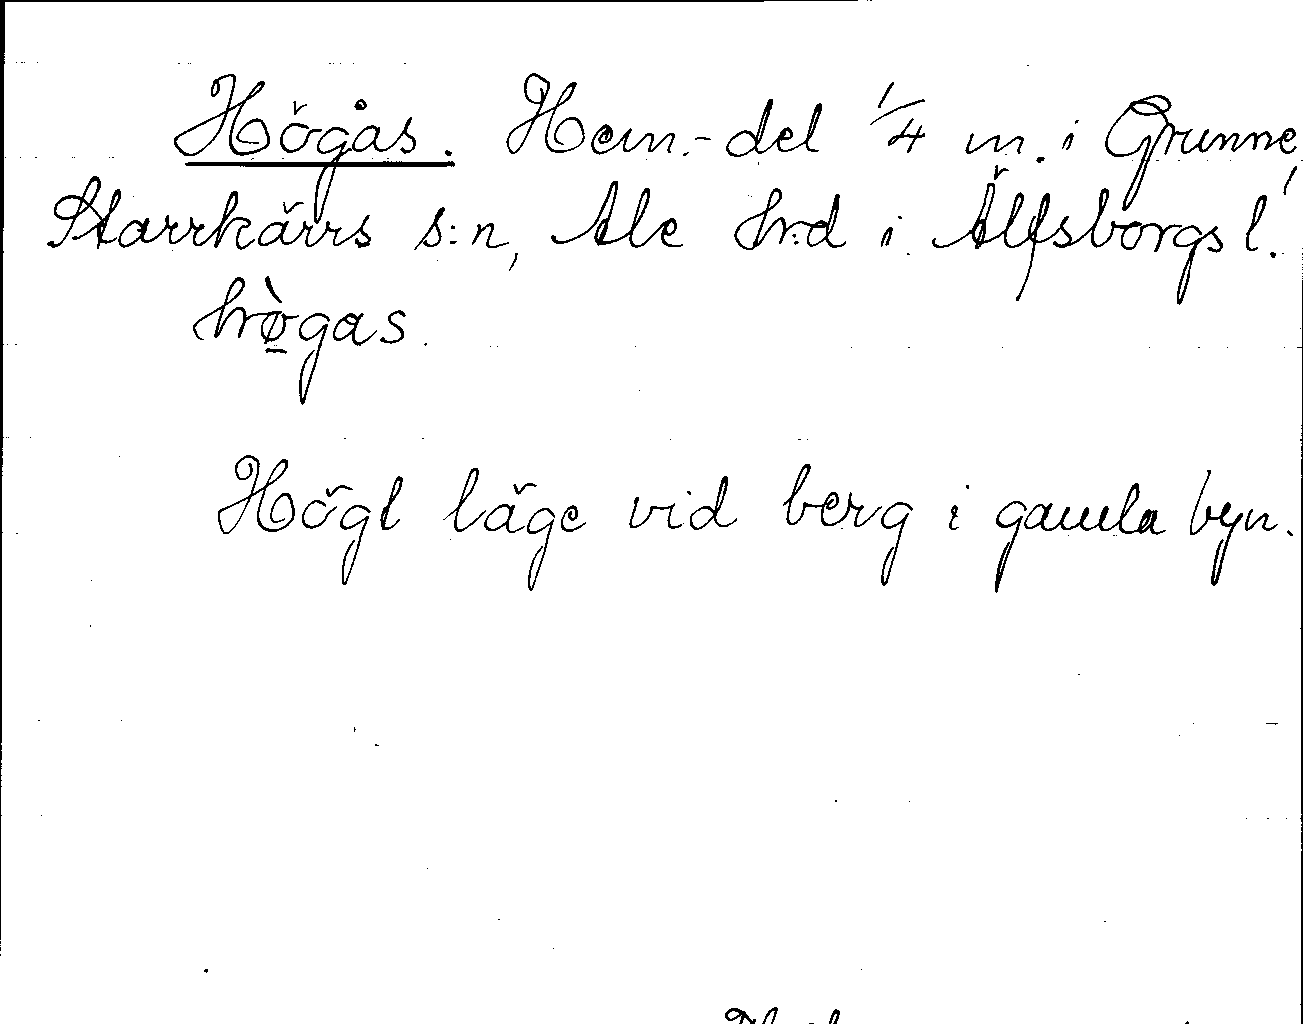 Högås. Hem.-del 1/4 m. i Grunne,
Starrkärrs s:n, Ale hrd i Älfsborgs l.
hø̀gas.
Högl läge vid berg i gamla byn.